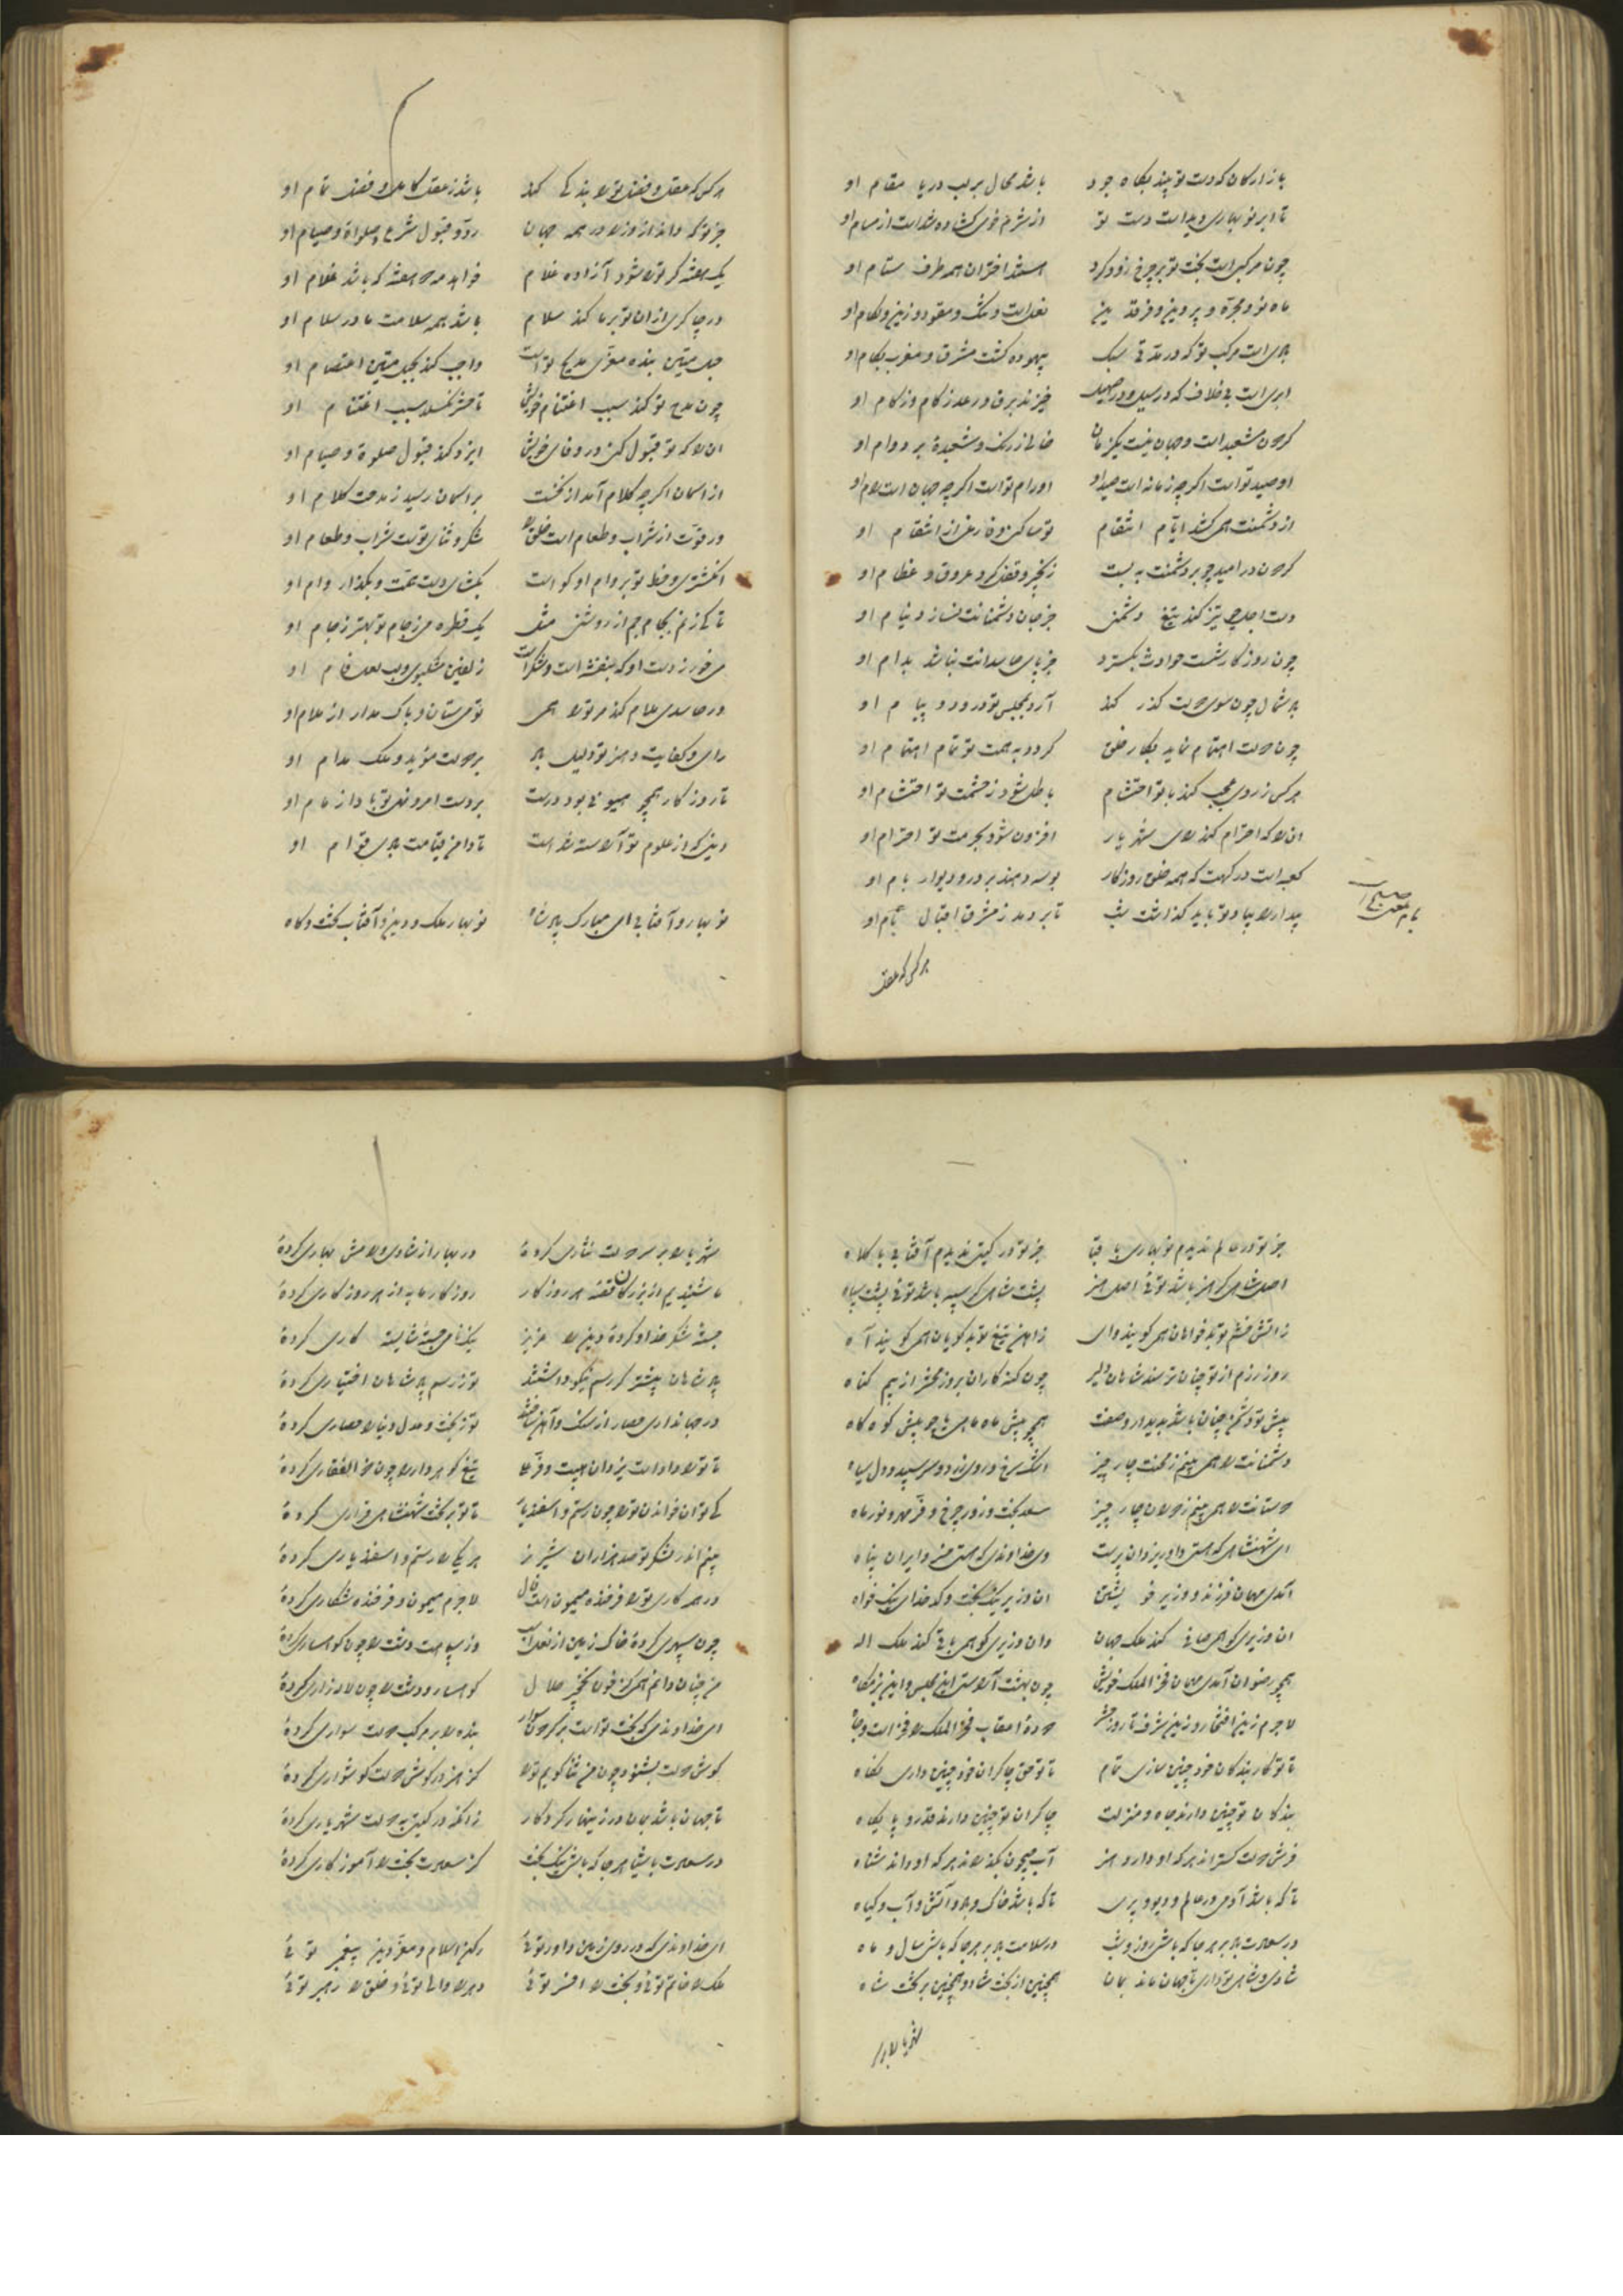 بازارکان که دست تو بیند بگاه جود باشد محال بر لب دریا مقام او
تا ابر نوبهاری دیدست دست تو از شرم خوی گشاده شدست از مسام او
چون مرکبی است بخت تو بر چرخ زود گرد استند اختران همه طرف ستام او
ماه نو و مجره و پروین و فرقدین نعل است و تنگ و مقود و زین و لگام او
بادی است مرکب تو که در مدتی سبک پیموده گشت مشرق و مغرب بگام او
ابری است بی خلاف که در سیل و در صهیل خیزند برق و رعد ز گام و ز کام او
گردون مشعبد است و جهان نیست یک زمان خالی ز رنگ و شعبده بر دوام او
او صید تو است اگرچه زمانه است صید او او رام تو است اگرچه جهان است رام او
از دشمنت همی کشد ایام انتقام تو ساکن و فارغی از انتقام او
گردون در امید چو بر دشمنت ببست زنجیر و قفل کرد عروق و عظام او
دست اجل چو تیز کند تیغ دشمنی جز جان دشمنانت نسازد نیام او
چون روزگار شست حوادث بگسترد جز پای حاسدانت نباشد بدام او
باد شمال چون سوی دولت گذر کند آرد بمجلس تو درود و پیام او
چون دولت اهتمام نماید بکار خلق گردد به همت تو تمام اهتمام او
هرکس ز روی عجب کند با تو احتشام باطل شود ز حشمت تو احتشام او
ان را که احترام کند رای شهریار افزون شود بحرمت تو احترام او
کعبه است درگهت که همه خلق روزگار بوسه دهند بر در و دیوار بام او
بیدار را بیاد تو باید گذاشت شب تا بردمد ز مشرق اقبال بام او
هرکس که عقل
هرکس که عقل و فضل تو را بندگی کند باشد ز عقل کامل و فضل تمام او
جز تو که داند از وزرا در همه جهان رد و قبول شرع و صلوة و صیام او
یک هفته گر تو را شود آزاده غلام خواهد مه دو هفته که باشد غلام او
ور چاکری از ان تو بر ما کند سلام باشد همه سلامت ما در سلام او
حبل متین بنده معزی مدیح تو است واجب کند بحبل متین اعتصام او
چون مدح تو کند سبب اغتنام خویش تا حشر نگسلد سبب اغتنام او
ان را که تو قبول کنی در وفای خویش ایزد کند قبول صلوة و صیام او
از اسمان اگرچه کلام آمد از نخست بر اسمان رسید ز مدحت کلام او
ور قوت از شراب و طعام است خلق را شکر و ثنای توست شراب و طعام او
انگشتری و خط تو بر وام او گواست بگشای دست همت و بگذار وام او
تا کی زنم بجام جم از روشنی مثل یک قطره می ز جام تو بهتر ز جام او
می خور ز دست او که بنفشه است و شکر است زلفین مشکبوی و لب لعل فام او
ور حاسدی ملام کند مر تو را همی تو می ستان و باک مدار از ملام او
رای و کفایت و هنر تو دلیل باد بر دولت مؤید و ملک مدام او
تا روز کار همچو هیونی بود درست بر دست امر و نهی تو بادا زمام او
دینی که از علوم تو آراسته شده است تا دامن قیامت بادی قوام او
نوبهار و آفتابی ای مبارک پادشاه نوبهار ملک و دین و آفتاب تخت و گاه
جز تو در عالم ندیدم نوبهاری با قبا جز تو در گیتی ندیدم آفتابی با کلاه
اصل شاهی گر هنر باشد توئی اصل هنر پشت شاهی گر سپه باشد توئی پشت سپاه
ز اتش خشم تو بدخواهان همی گویند وای ز اهن تیغ تو بدگویان همی گویند آه
روز رزم از تو چنان ترسند شاهان دلیر چون گنه کاران بروز محشر از بیم گناه
پیش تو دشمن چنان باشد بدیدار و صفت همچو پیش ماه ماهی یا چو پیش کوه کاه
دشمنانت را همی بینم ز محنت چار چیز اشک سرخ و روی زرد و موی سپید و دل سیاه
دوستانت را همی بینم ز دولت چار چیز سعد بخت و زور چرخ و فر مهر و نور ماه
ای شهنشاهی که هستی داور یزدان پرست وی خداوندی که هستی خسرو ایران پناه
آمدی مهمان فرزند و وزیر خویشتن ان وزیر نیکبخت و کدخدای نیکخواه
ان وزیری کو همی صافی کند ملک جهان وان وزیری کو همی باقی کند ملک اله
همچو رضوان آمدی مهمان فخر الملک خویش چون بهشت آراستی این مجلس و این بزمگاه
لاجرم زین افتخار و زین شرف تا روز حشر دوده اعقاب فخر الملک را فخر است و جاه
تا تو کار بندگان خود چنین سازی تمام تا تو حق چاکران خود چنین داری نگاه
بندگان تو چنین دارند جاه و منزلت چاکران تو چنین دارند قدر و پایگاه
فرش دولت گستراند هرکه او دارد هنر آب جیحون بگذراند هرکه او داند شناه
تا که باشد آدمی در عالم و دیو و پری تا که باشد خاک و باد و آتش و آب و گیاه
در سعادت باد بر هر جا که باشی روز و شب در سلامت باد بر هر جا که باشی سال و ماه
شادی و شاهی تو داری تا جهان ماند بمان همچنین از بخت شاد و همچنین بر تخت شاه
شهریارا بر
شهریارا بر سر دولت نثاری کرده در بهار از شادی و رامش بهاری کرده
ما شنیدیم از بزرگان قصه هر روزکار روزکار ما به از هر روزکاری کرده
جسته شکر خدا و کرده دین را عزیز نیک نامی جسته شایسته کاری کرده
پادشاهان پیشتر گر رسم نیکو داشتند تو ز رسم پادشاهان اختیاری کرده
در جهانداری حصار از سنگ و آهن ساختند تو ز بخت و عدل دنیا را حصاری کرده
تا تو را دادست یزدان هیبت و فر علی تیغ گوهردار را چون ذو الفقاری کرده
کی توان خواندن تو را چون رستم و اسفندیار تا تو بر تخت شهنشاهی قراری کرده
بینم اندر لشکر تو صد هزاران شیر نر هر یکی را رستم و اسفندیاری کرده
در همه کاری تو را فرخنده میمون است فال لاجرم میمون و فرخنده شکاری کرده
چون سپهری کرده خاک زمین از نعل اسب وز سپاهت دشت را چون کوهساری کرده
من چنان دانم همی کز خون نخجیر حلال کوهسار و دشت را چون لاله زاری کرده
ای خداوندی که بخت تو است بر گردون سوار بنده را بر مرکب دولت سواری کرده
گوش دولت بشنود چون من ثنا گویم تو را کز هنر در گوش دولت گوشواری کرده
تا جهان باشد بمان در زینهار کردگار زانکه در گیتی به دولت شهریاری کرده
در سعادت با شیا هر جا که باشی نیکبخت کز سعادت بخت را آموزگاری کرده
ای خداوندی که در روی زمین داور توئی رکن اسلام و معز دین پیغمبر توئی
ملک را خاتم توئی و بخت را افسر توئی دهر را والی توئی و خلق را رهبر توئی